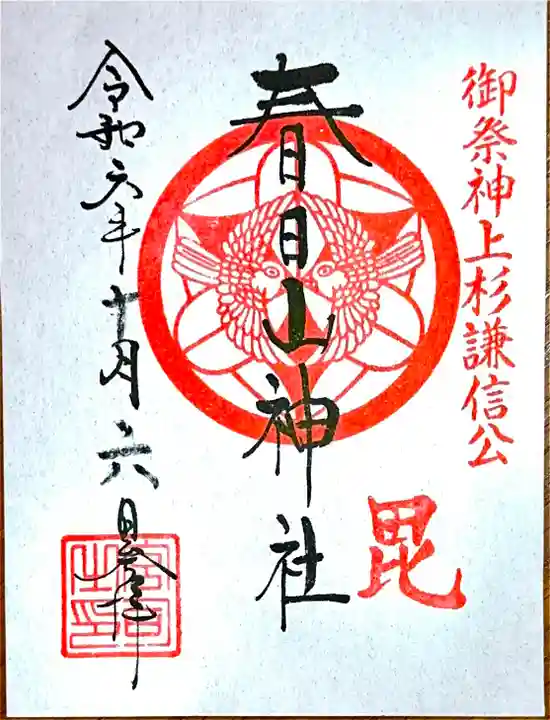 御祭神上杉謙信公
毘
春日山神社
令和六年十月六日参拝